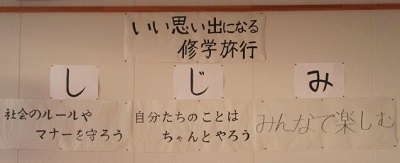 いい思い出になる
修学旅行
し
じ
み
社会のルールや
マナーを守ろう
自分たちのことは
ちゃんとやろう
みんなで楽しむ